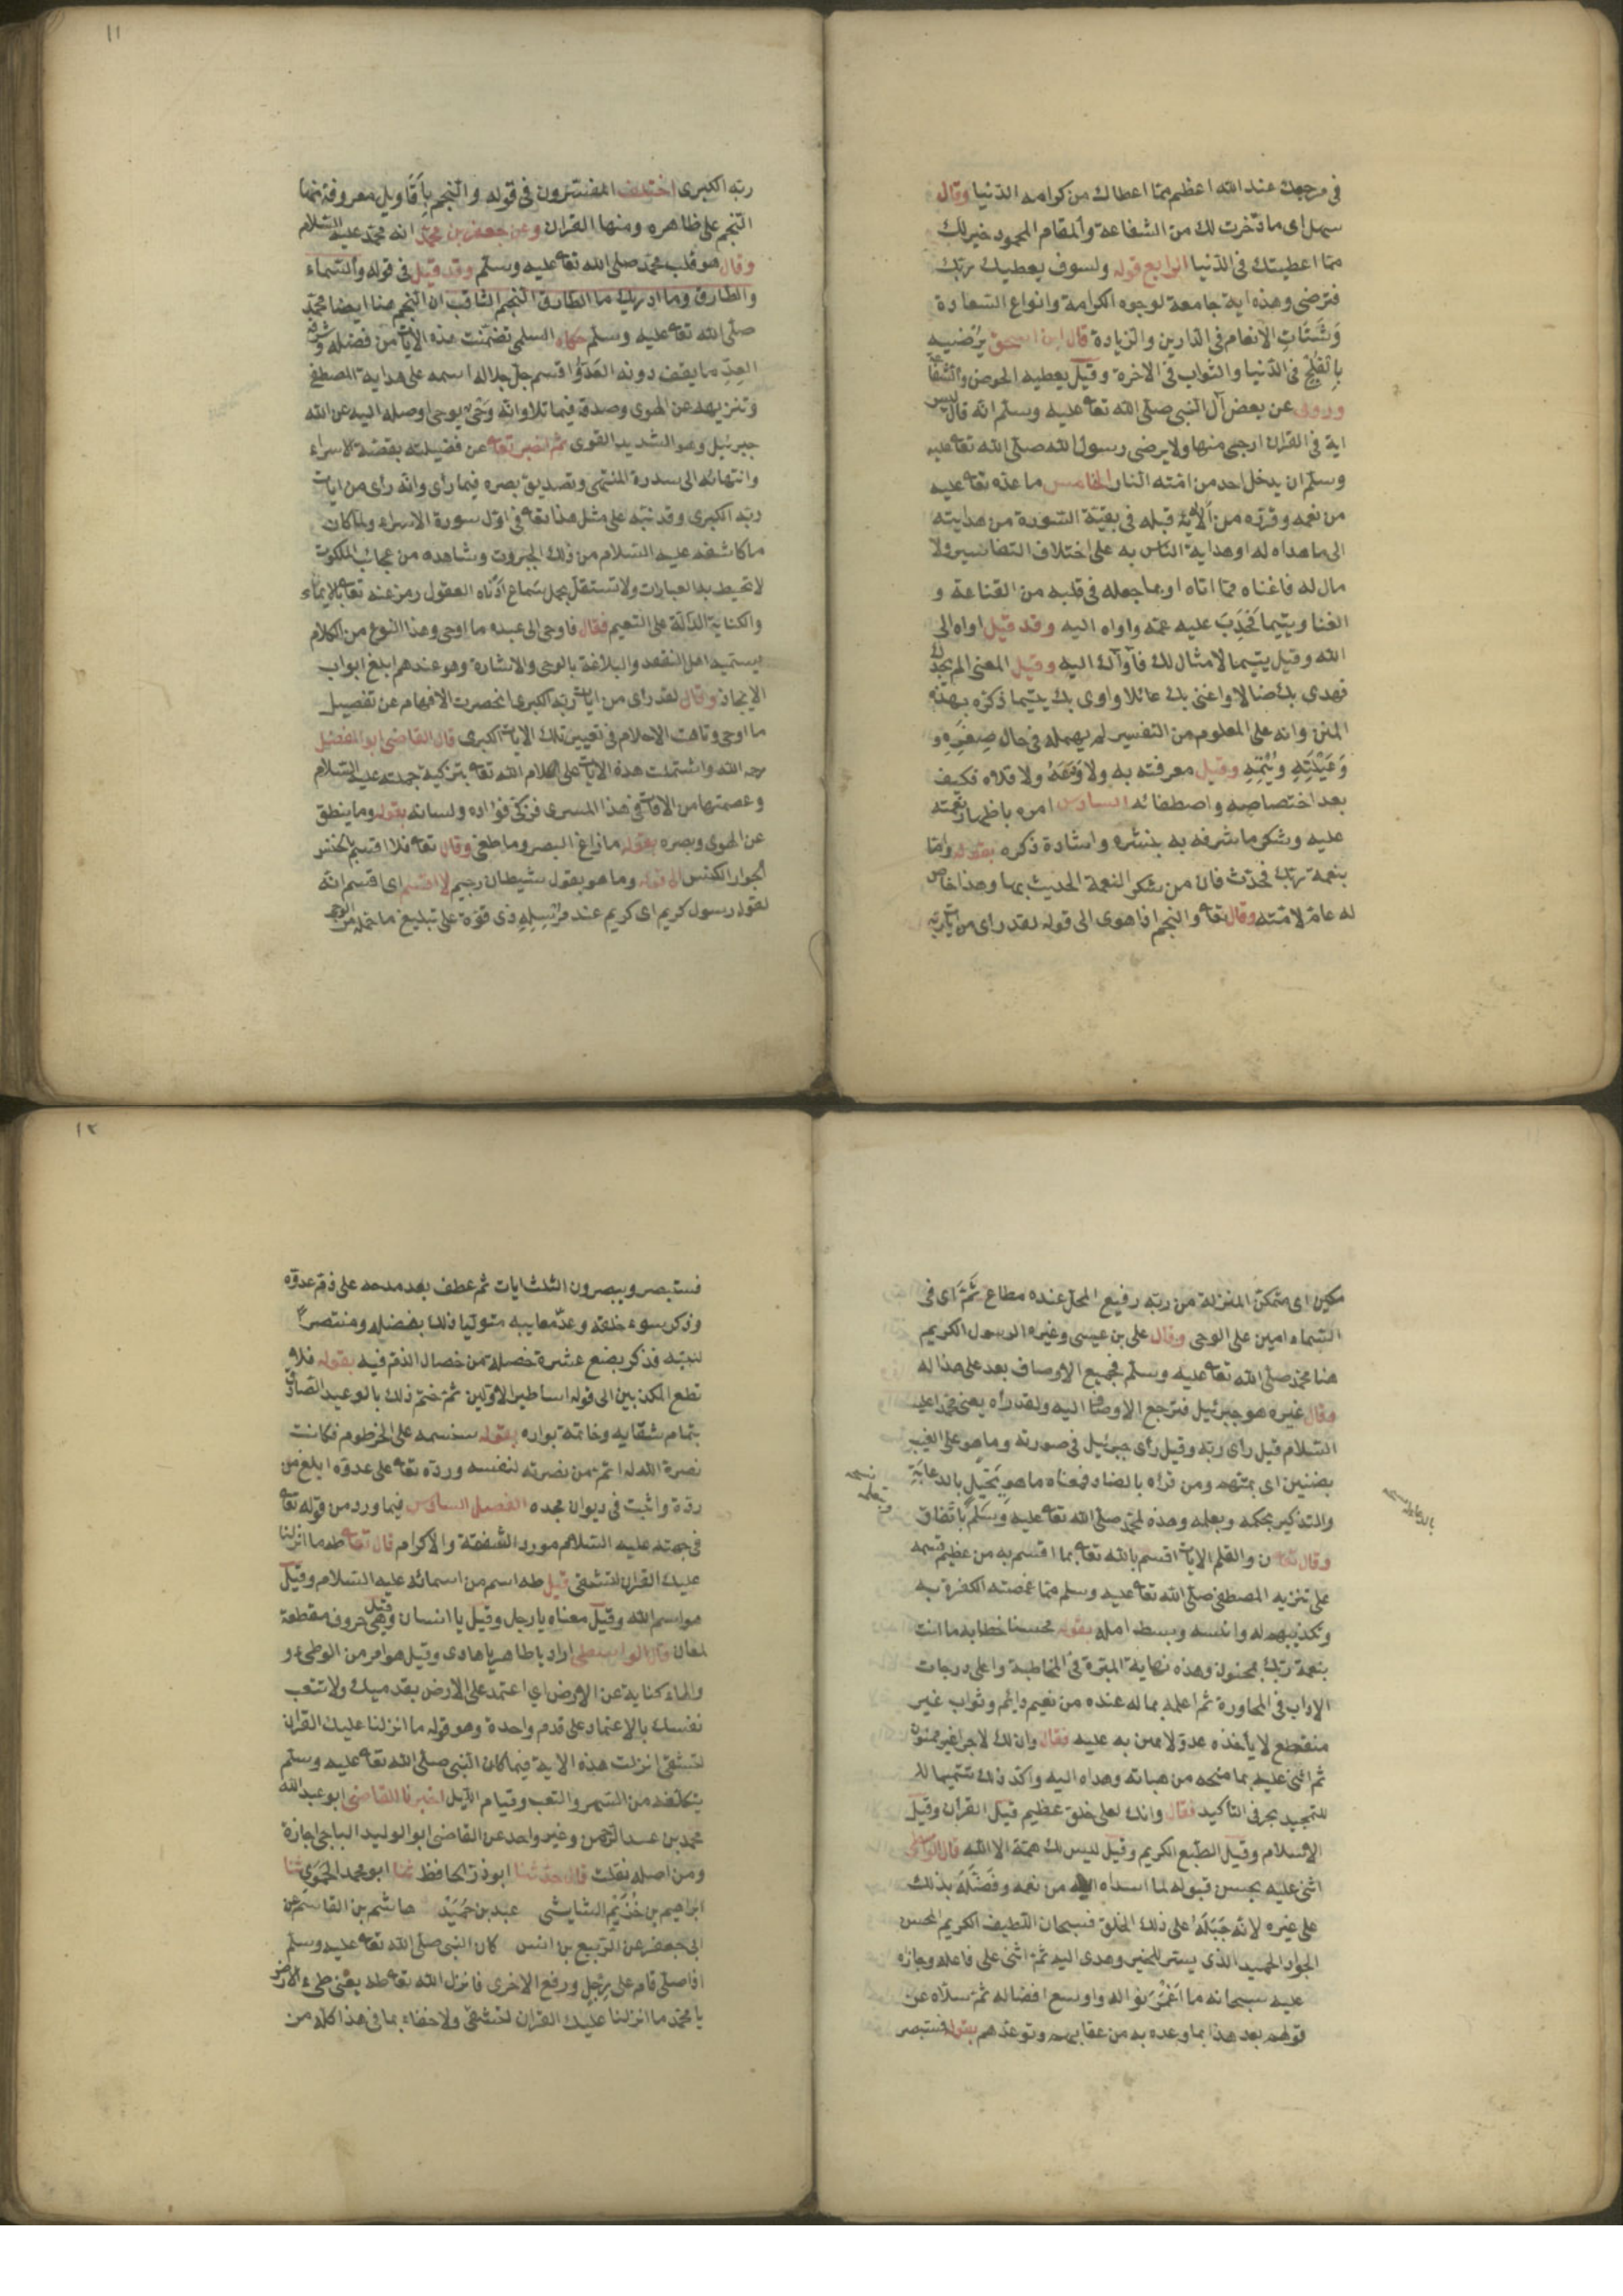 في مرجعك عند الله اعظم مما اعطاك من كرامة الدنيا وقال
سهل اى ما ذخرت لك من الشفاعة والمقام المحمود خير لك
مما اعطيتك في الدنيا الرابع قوله ولسوف يعطيك ربك
فترضى وهذه اية جامعة لوجوه الكرامة وانواع السعادة
وَشَتَاتِ الانعام في الدارين والزيادة قال ابن اسحق يُرضيه
بالفَلْج في الدنيا والثواب في الاخرة وقيل يعطيه الحوض والشفاعة
وروى عن بعض آل النبي صلى الله تعا عليه وسلم انه قال ليس
اية في القران ارجى منها ولا يرضى رسول الله صلى الله تعا عليه
وسلم ان يدخل احد من امته النار الخامس ما عده تعا عليه
من نعمه وقرره من آلائه قبله في بقية السورة من هدايته
الى ما هداه له او هداية الناس به على اختلاف التفاسير ولا
مال له فاغناه بما اتاه او بما جعله في قلبه من القناعة و
الغنا ويتيما فَحَدِبَ عليه عمه واواه اليه وقد قيل اواه الى
الله وقيل يتيما لا مثال لك فآواك اليه وقيل المعنى الم يجدك
فهدى بك ضالا واغنى بك عائلا واوى بك يتيما ذكره بهذه
المنن وانه على المعلوم من التفسير لم يهمله في حال صِغَرِهِ و
وَعَيْلَتِهِ ويُتْمِهِ وقيل معرفته به ولا وَدَعَهُ ولا قلاه فكيف
بعد اختصاصه واصطفائه السادس امره باظهار نعمته
عليه وشكر ما شرفه به بنشره واشادة ذكره بقوله واما
بنعمة ربك فحدث فان من شكر النعمة الحديث بها وهذا خاص
له عام لامته وقال تعا والنجم اذا هوى الى قوله لقد راى من ايات ربه
١١
ربه الكبرى اختلف المفسرون في قوله والنجم باَقَاويل معروفة منها
النجم على ظاهره ومنها القران وعن جعفر بن محمد انه محمد عليه السلام
وقال هو قلب محمد صلى الله تعا عليه وسلم وقد قيل في قوله والسماء
والطارق وما ادريك ما الطارق النجم الثاقب ان النجم هنا ايضا محمد
صلى الله تعا عليه وسلم حكاه السلمي تضمنت هذه الايات من فضله وشرفه
العِدِّ ما يقف دونه العَدّ واقسم جل جلاله اسمه على هداية المصطفى
وتنزيهه عن الهوى وصدقه فيما تلا وانه وَحْىٌ يوحى اوصله اليه عن الله
جبرئيل وهو الشديد القوى ثم اخبر تعا عن فضيلته بقصة الاسراء
وانتهائه الى سدرة المنتهى وتصديق بصره فيما راى وانه راى من ايات
ربه الكبرى وقد نبه على مثل هذا تعا في اول سورة الاسراء ولما كان
ما كاشفه عليه السلام من ذلك الجبروت وشاهده من عجائب الملكوت
لا تحيط به العبارات ولا تستقل بحمل سَماع ادناه العقول رمز عنه تعا بالايماء
والكناية الدالة على التعظيم فقال فاوحى الى عبده ما اوحى وهذا النوع من الكلام
يسميه اهل النقد والبلاغة بالوحى والاشارة وهو عندهم ابلغ ابواب
الايجاز وقال لقد راى من ايات ربه الكبرى انحصرت الافهام عن تفصيل
ما اوحى وتاهت الاحلام في تعيين تلك الايات الكبرى قال القاضى ابو الفضل
رحمه الله واشتملت هذه الايات على اعلام الله تعا بتزكية جملته عليه السلام
وعصمتها من الافات في هذا المسرى فزكى فؤاده ولسانه بقوله وما ينطق
عن الهوى وبصره بقوله ما زاغ البصر وما طغى وقال تعا فلا اقسم بالخنس
الجوار الكنس الى قوله وما هو بقول شيطان رجيم لا اقسم اى اقسم انه
لقول رسول كريم اى كريم عند مرسله ذى قوة على تبليغ ما حمله من الوحى
مكين اى متمكن المنزلة من ربه رفيع المحل عنده مطاع ثَمَّ اى في
السماء امين على الوحى وقال على بن عيسى وغيره الرسول الكريم
هنا محمد صلى الله تعا عليه وسلم فجميع الاوصاف بعد على هذا له
وقال غيره هو جبرئيل فترجع الاوصاف اليه ولقد رأه يعنى محمدا عليه
السلام قيل رأى ربه وقيل رأى جبرئيل في صورته وما هو على الغيب
بضنين اى بمتهم ومن قرأه بالضاد فمعناه ما هو بَخيل بالدعاية
والتذكير بحكمه وبعلمه وهذه لمحمد صلى الله تعا عليه وسلم باتفاق
وقال تعا ن والقلم الايات اقسم بالله تعا بما اقسم به من عظيم قسمه
على تنزيه المصطفى صلى الله تعا عليه وسلم مما غمصته الكفرة به
وتكذيبهم له وانسه وبسط امله بقوله محسنا خطابه ما انت
بنعمة ربك بمجنون وهذه نهاية المبرة في المخاطبة واعلى درجات
الاداب في المحاورة ثم اعلمه بما له عنده من نعيم دائم وثواب غير
منقطع لا يأخذه عدّ ولا يمن به عليه فقال وان لك لاجرا غير ممنون
ثم اثنى عليه بما منحه من هباته وهداه اليه واكد ذلك تتميما لل
للتمجيد بحرفى التاكيد فقال وانك لعلى خلق عظيم قيل القرآن وقيل
الاسلام وقيل الطبع الكريم وقيل ليس لك همة الا الله قال الواسطى
اثنى عليه بحسن قبوله لما اسداه اليه من نعمه وفَضَّلَهُ بذلك
على غيره لانه جَبَلَهُ على ذلك الخلق فسبحان اللطيف الكريم المحسن
الجواد الحميد الذى يسر للخير وهدى اليه ثم اثنى على فاعله وجازه
عليه سبحانه ما اَغْمَرَ نواله واوسع افضاله ثم سلاه عن
قولهم بعد هذا بما وعده به من عقابهم وتوعدهم بقوله فستبصر
١٢
فستبصر ويبصرون الثلث ايات ثم عطف بعد مدحه على ذم عدوه
وذكر سوء خلقه وعدّ معايبه متوليا ذلك بفضله ومنتصراً
لنبيه فذكر بضع عشرة خصلة من خصال الذم فيه بقوله فلا
تطع المكذبين الى قوله اساطير الاولين ثم ختم ذلك بالوعيد الصادق
بتمام شقايه وخاتمة بواره بقوله سنسمه على الخرطوم فكانت
نصرة الله له اتم من نصرته لنفسه ورده تعا على عدوه ابلغ من
رده واثبت في ديوان مجده الفصل السادس فيما ورد من قوله تعا
في جهته عليه السلام مورد الشفقة والاكرام قال تعا طه ما انزلنا
عليك القران لتشقى قيل طه اسم من اسمائه عليه السلام وقيل
هو اسم الله وقيل معناه يا رجل وقيل يا انسان وقيل هى حروف مقطعة
لمعان قال الواسطى اراد يا طاهر يا هادى وقيل هو امر من الوطئ و
والهاء كناية عن الارض اي اعتمد على الارض بقدميك ولا تتعب
نفسك بالاعتماد على قدم واحدة وهو قوله ما انزلنا عليك القران
لتشقى نزلت هذه الاية فيما كان النبي صلى الله تعا عليه وسلم
يتكلفه من السهر والتعب وقيام الليل اخبرنا القاضى ابو عبد الله
محمد بن عبد الرحمن وغير واحد عن القاضى ابو الوليد الباجى اجازة
ومن اصله نقلت قال حدثنا ابو ذر الحافظ ثنا ابو محمد الحَمَوى ثنا
ابراهيم بن خُزَيْم الشاشى عبد بن حُمَيْد هاشم بن القاسم عن
ابى جعفر عن الربيع بن انس كان النبي صلى الله تعا عليه وسلم
اذا صلى قام على رِجْلٍ ورفع الاخرى فانزل الله تعا طه يعنى طئ الارض
يا محمد ما انزلنا عليك القران لتشقى ولا خفاء بما في هذا كله من